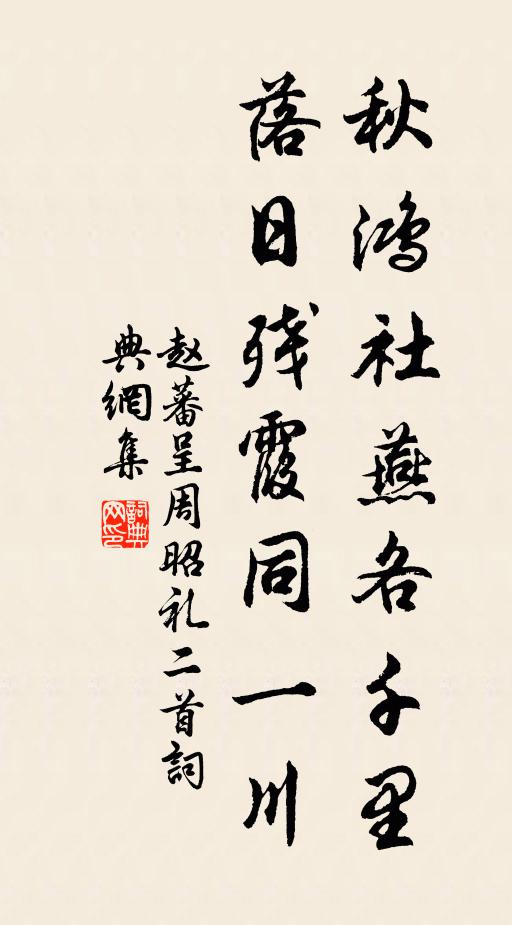 秋鸿社燕各千里
落日残霞同一川
赵蕃呈周昭礼二首詞
典網集
詞典
网印